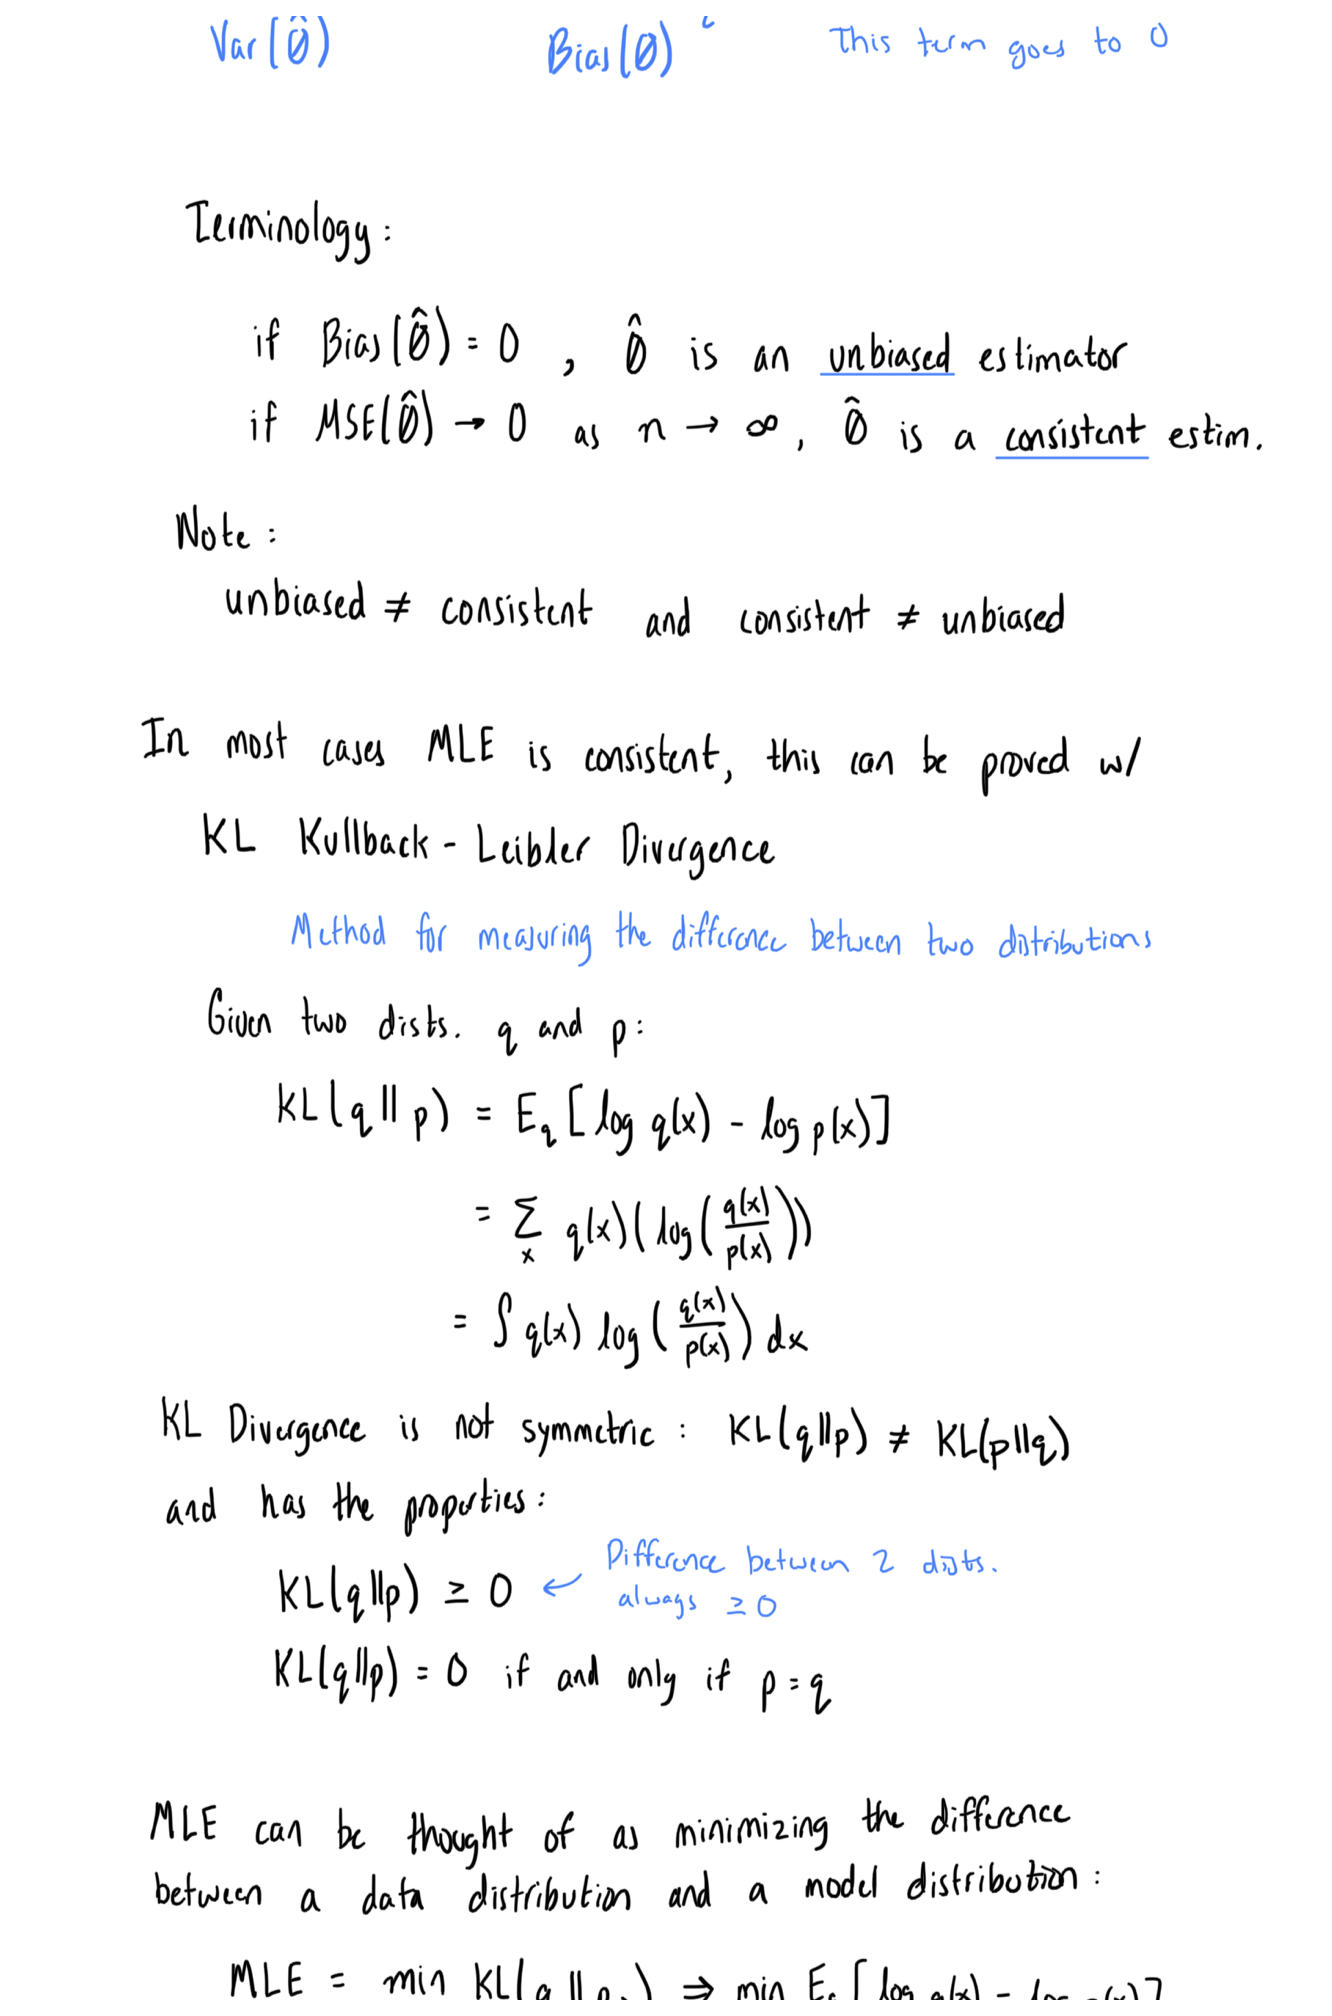 Var(θ̂) Bias(θ̂)² This term goes to 0
Terminology:
if Bias(θ̂) = 0 , θ̂ is an unbiased estimator
if MSE(θ̂) → 0 as n → ∞, θ̂ is a consistent estim.
Note:
unbiased ≠ consistent and consistent ≠ unbiased
In most cases MLE is consistent, this can be proved w/
KL Kullback - Leibler Divergence
Method for measuring the difference between two distributions
Given two dists. q and p:
KL(q || p) = E_q [log q(x) - log p(x)]
= Σ_x q(x)(log(q(x)/p(x)))
= ∫ q(x) log(q(x)/p(x)) dx
KL Divergence is not symmetric: KL(q||p) ≠ KL(p||q)
and has the properties:
KL(q||p) ≥ 0 ← Difference between 2 dists.
always ≥ 0
KL(q||p) = 0 if and only if p = q
MLE can be thought of as minimizing the difference
between a data distribution and a model distribution:
MLE = min KL(q || p ) ⇒ min E [log q(x) - log p(x)]